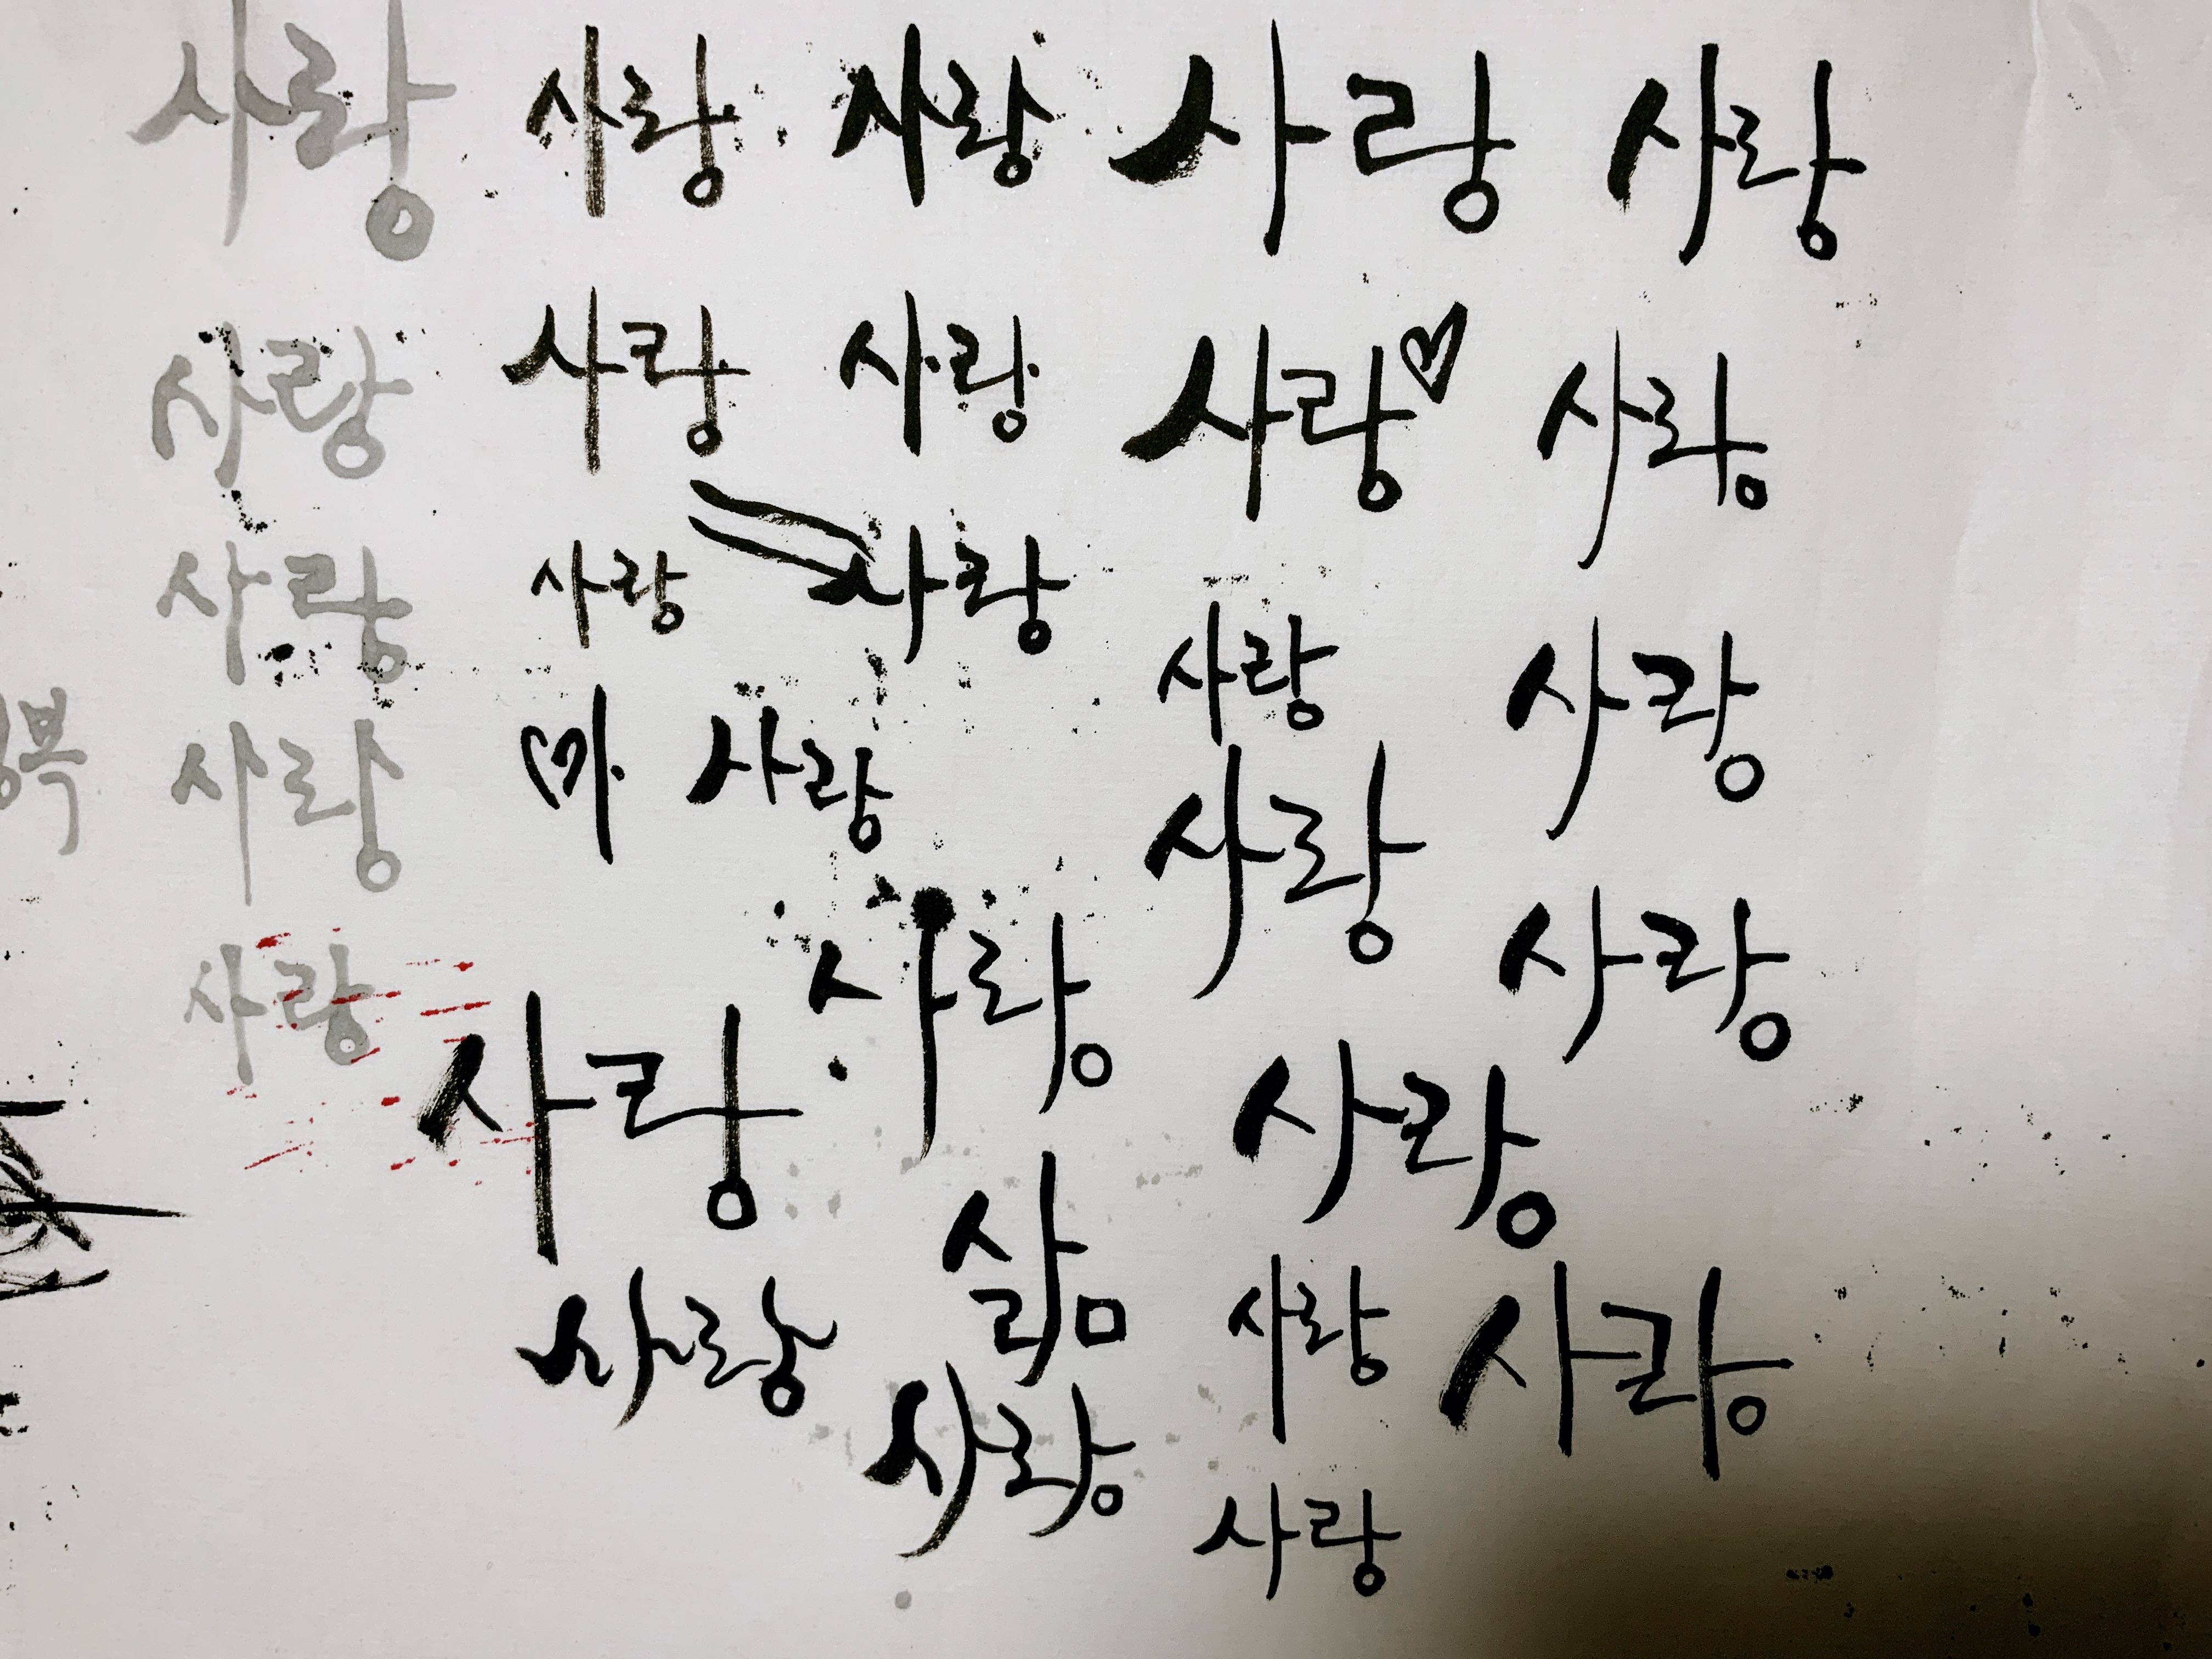 사랑 사랑 사랑 사랑 사랑
사랑 사랑 사랑 사랑 사랑
사랑 사랑 사랑 사랑 사랑
복 사랑 사랑 사랑
사랑 사랑 사랑
사랑 사랑
삶
사랑 사랑 사랑
사랑
사랑